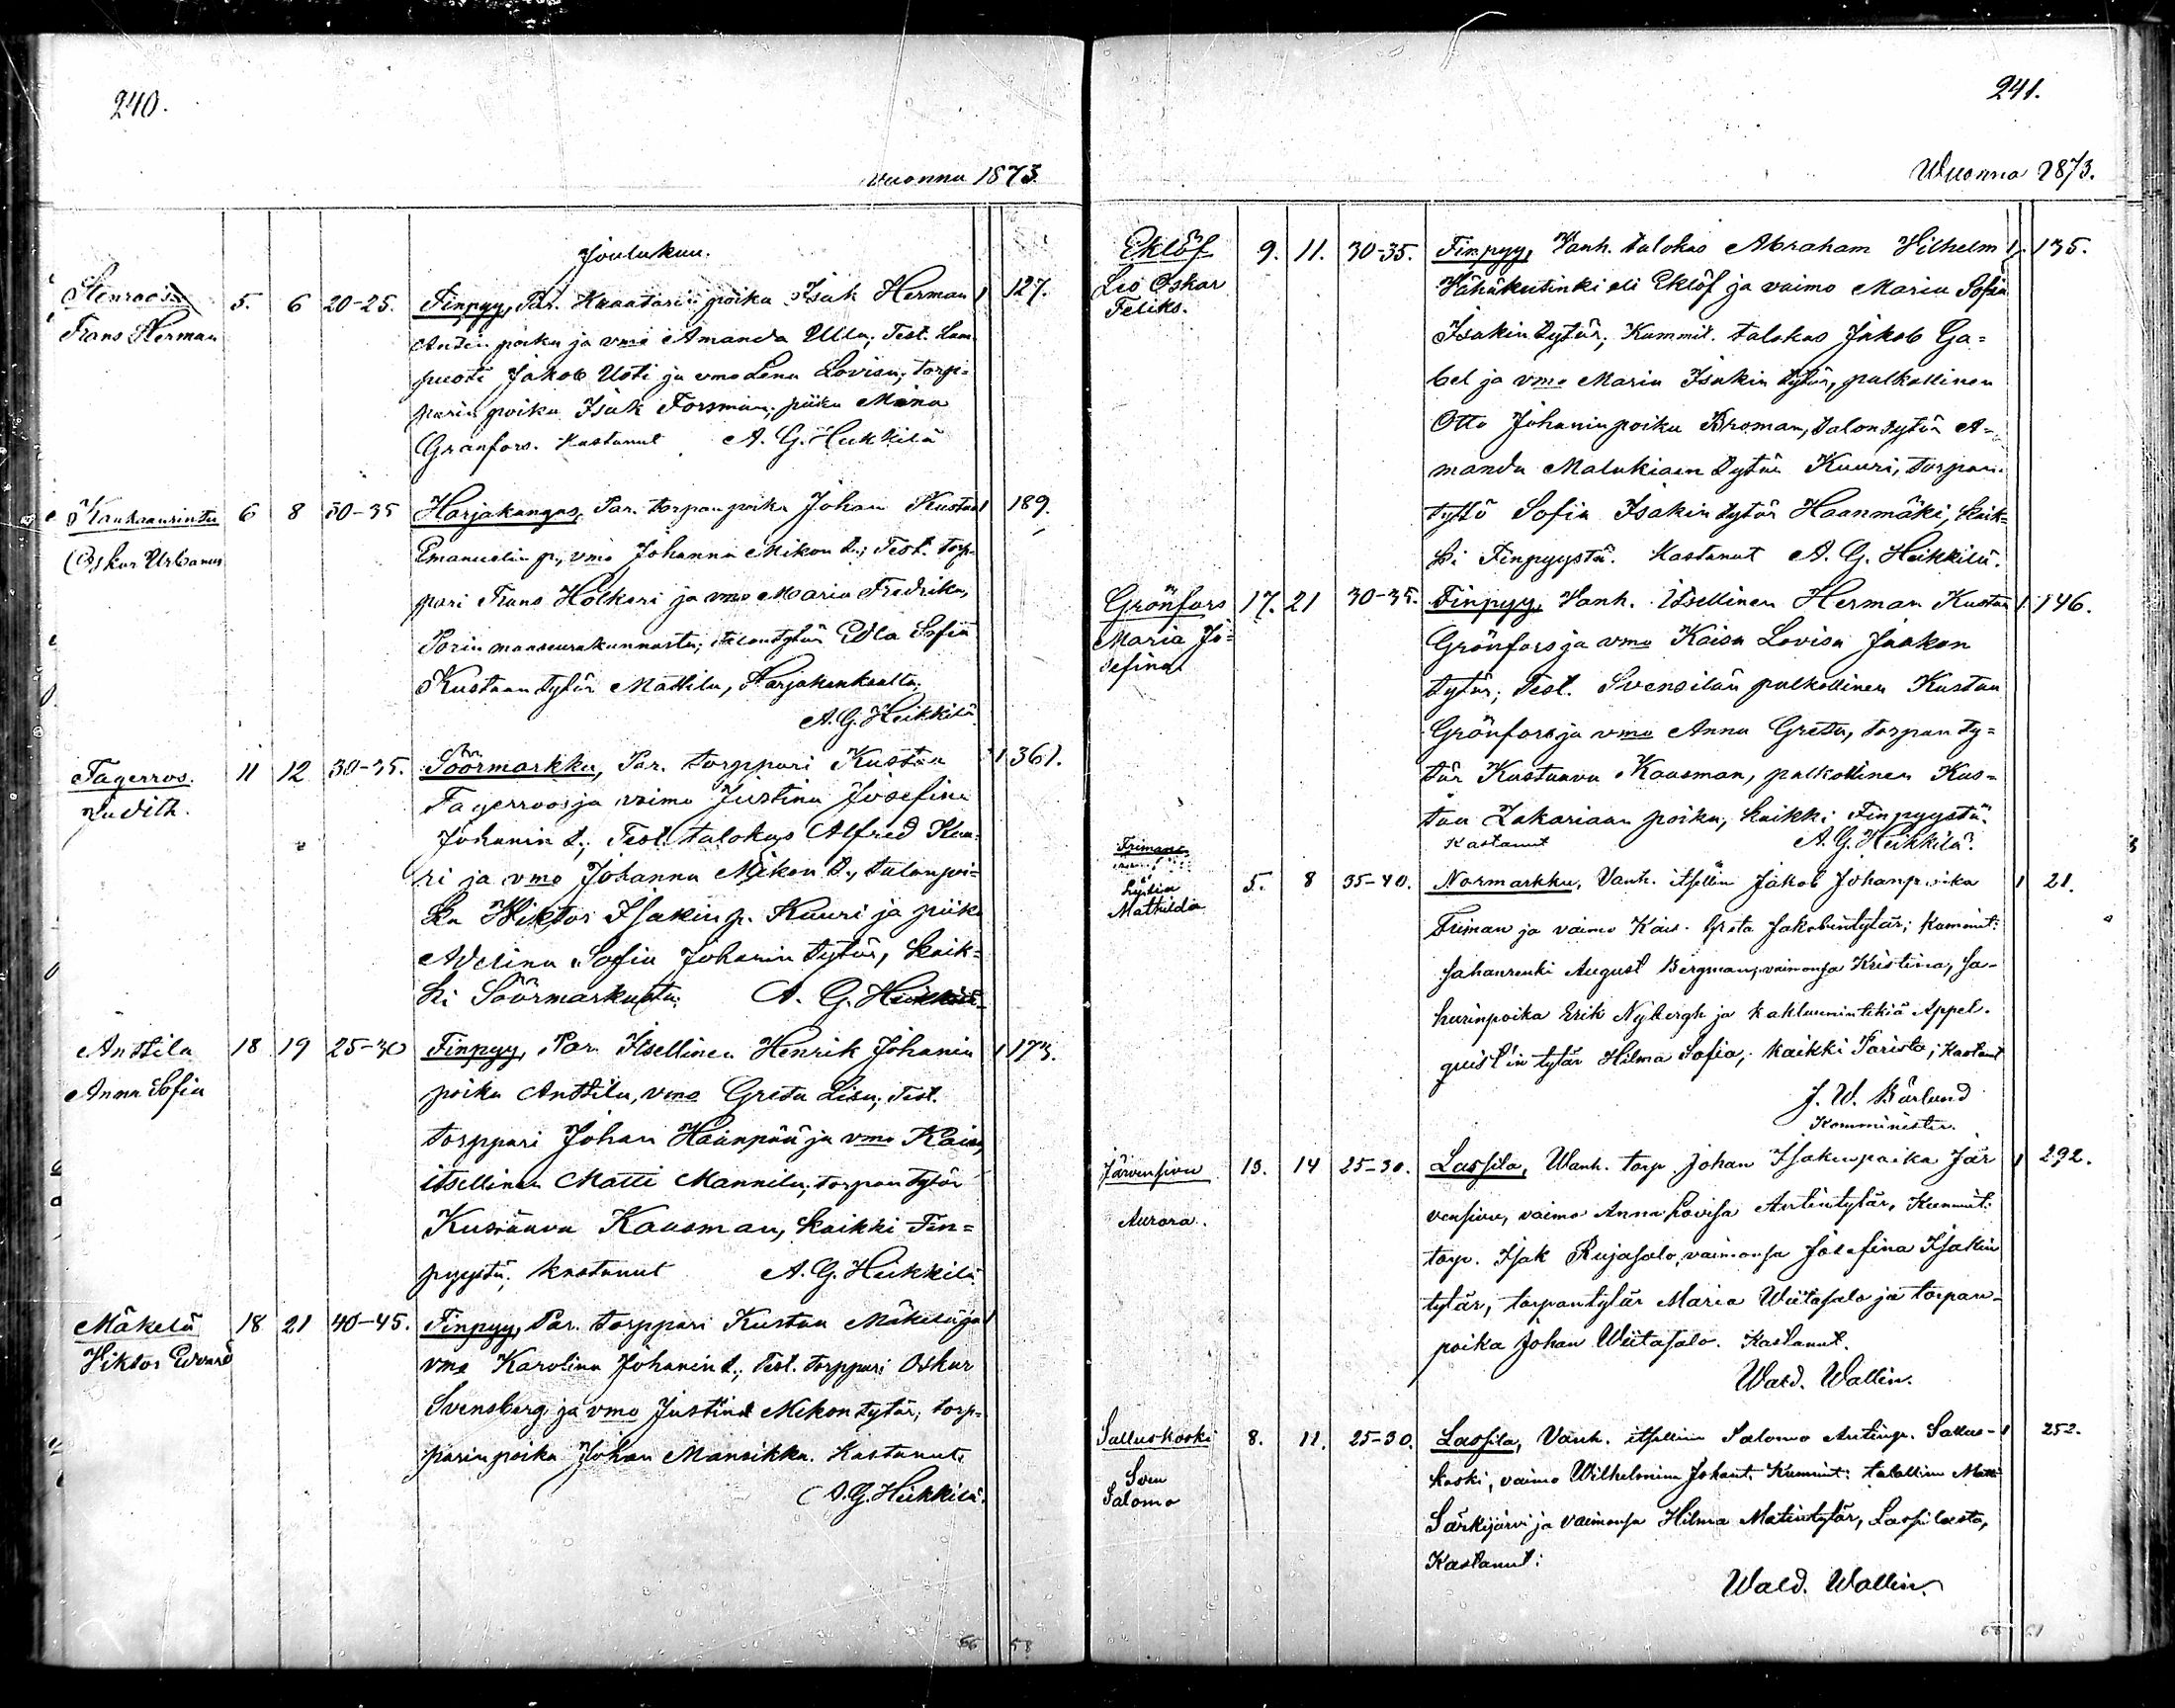 240.
Vuonna 1873
Joulukuu.
Stenroos 5. 6 20-25. Finpyy, Par. poika Isak Herman 1 127.
Frans Herman Antin poika ja vmo Amanda Ulla; Test. Lam-
puoti Jakob Uoti ja vmo Lena Lovisa; torp-
parin poika Isak Forsman; piika Mina
Granfors. Kastanut A. G. Heikkilä
Kankaanrinta 6 8 30-35 Harjakangas, Par. torpanpoika Johan Kustaa 1 189.
Oskar Urbanus Emanuelin p., vmo Johanna Mikon t.; Test. torp-
pari Frans Holkeri ja vmo Maria Fredrika,
Porin maaseurakunnasta; talontytär Edla Sofia
Kustaan tytär Mattila, Harjakankaalta;
A. G. Heikkilä
Fagerros. 11 12 30-35. Söörmarkku, Par. torppari Kustaa 1 361.
Judith. Fagerroos ja vaimo Justina Josefina
Johanin t.; Test. talokas Alfred Kuu-
ri ja vmo Johanna Mikon t., talonpoi-
ka Wiktor Isakin p. Kuuri ja piika
Adelina Sofia Johanin tytär, kaik-
ki Söörmarkusta; A. G. Heikkilä
Anttila 18 19 25-30 Finpyy, Par. Itsellinen Henrik Johanin 1 173.
Anna Sofia poika Anttila, vmo Greta Lisa; Test.
torppari Johan Haanpää ja vmo Kaisa,
itsellinen Matti Mannila; torpan tytär
Kustaava Kaasman, kaikki Fin-
pyystä; kastanut A. G. Heikkilä
Mäkelä 18 21 40-45. Finpyy, Par. torppari Kustaa Mäkelä ja 1
Viktor Edvard vmo Karolina Johanin t.; Test. torppari Oskar
Svensberg ja vmo Justina Mikon tytär; torp-
parin poika Johan Mansikka. Kastanut
A. G. Heikkilä.
66 58
241.
Wuonna 1873.
Eklöf 9. 11. 30-35. Finpyy, Vanh. talokas Abraham Vilhelm 1 135.
Leo Oskar Vähäkutinki eli Eklöf ja vaimo Maria Sofia
Feliks. Isakin tytär; Kummit. talokas Jakob Ga-
bel ja vmo Maria Isakin tytär, palkollinen
Otto Johanin poika Broman, talon tytär A-
manda Malakiaan tytär Kuuri, torpan
tyttö Sofia Isakin tytär Haanmäki, kaik-
ki Finpyystä. Kastanut A. G. Heikkilä.
Grönfors 17. 21 30-35. Finpyy, Vanh. Itsellinen Herman Kustaa 1 146.
Maria Jo- Grönfors ja vmo Kaisa Lovisa Jaakon
sefina tytär; Test. Svensilän palkollinen Kustaa
Grönfors ja vmo Anna Greta, torpan ty-
tär Kustaava Kaasman, palkollinen Kus-
taa Zakariaan poika, kaikki Finpyystä.
Kastanut A. G. Heikkilä.
Friman
Lydia 5. 8 35-40. Normarkku, Vanh. itsellin Jakob Johanpoika 1 21.
Mathilda Friman ja vaimo Kais. Greta Jakobintytär; kummit:
Sahanrenki August Bergman, vaimonsa Kristina, sa-
hurinpoika Erik Nybergh ja kakluunintekiä Appel-
quist'in tytär Hilma Sofia; kaikki Porista; Kastanut
J. W. Bärlund
Komminister.
Järvensivu 13. 14 25-30. Lassila, Wanh. torp. Johan Isakinpoika Jär 1 292.
Aurora. vensivu, vaimo Anna Lovisa Antintytär, Kummit:
torp. Isak Rujasalo, vaimonsa Josefina Isakin
tytär, torpantytär Maria Wiitasalo ja torpan-
poika Johan Wiitasalo. Kastanut.
Wald. Wallin.
Salluskoski 8. 11. 25-30. Lassila, Vanh. itsellinen Salomo Antinp. Sallus- 1 252.
Sven koski, vaimo Wilhelmina Johant. Kummit: talollinen Matti
Salomo Särkijärvi ja vaimonsa Hilma Matintytär, Lassilasta,
Kastanut:
Wald. Wallin.